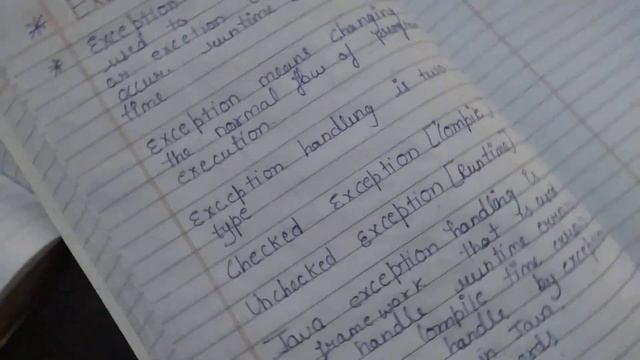 * Exception
used to
or
occur runtime
time
Exception means changing
the normal flow of
execution.
Exception handling is two
type
Checked Exception [Compile
Unchecked Exception [Runtime]
Java exception handling is
framework that is used
handle runtime
compile time
handle by exception
in Java.